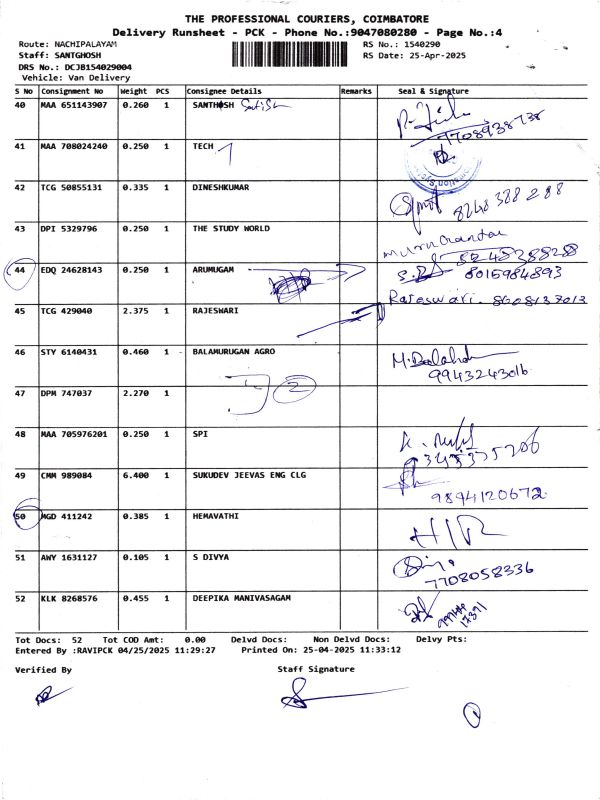 THE PROFESSIONAL COURIERS, COIMBATORE
Delivery Runsheet - PCK - Phone No.:9047080280 - Page No.:4
Route: NACHIPALAYAM RS No.: 1540290
Staff: SANTGHOSH RS Date: 25-Apr-2025
DRS No.: DCJB154029004
Vehicle: Van Delivery
S No Consignment No Weight PCS Consignee Details Remarks Seal & Signature
40 MAA 651143907 0.260 1 SANTHOSH Satish
7708938738
41 MAA 708024240 0.250 1 TECH
42 TCG 50855131 0.335 1 DINESHKUMAR
8248388288
43 DPI 5329796 0.250 1 THE STUDY WORLD
44 EDQ 24628143 0.250 1 ARUMUGAM 8015984893
Rajeswari. 8608137013
45 TCG 429040 2.375 1 RAJESWARI
46 STY 6140431 0.460 1 BALAMURUGAN AGRO
9943243016
47 DPM 747037 2.270 1 2
48 MAA 705976201 0.250 1 SPI
49 CMM 989084 6.400 1 SUKUDEV JEEVAS ENG CLG
9894120672
50 MGD 411242 0.385 1 HEMAVATHI
51 AWY 1631127 0.105 1 S DIVYA
7708058336
52 KLK 8268576 0.455 1 DEEPIKA MANIVASAGAM
Tot Docs: 52 Tot COD Amt: 0.00 Delvd Docs: Non Delvd Docs: Delvy Pts:
Entered By :RAVIPCK 04/25/2025 11:29:27 Printed On: 25-04-2025 11:33:12
Verified By Staff Signature